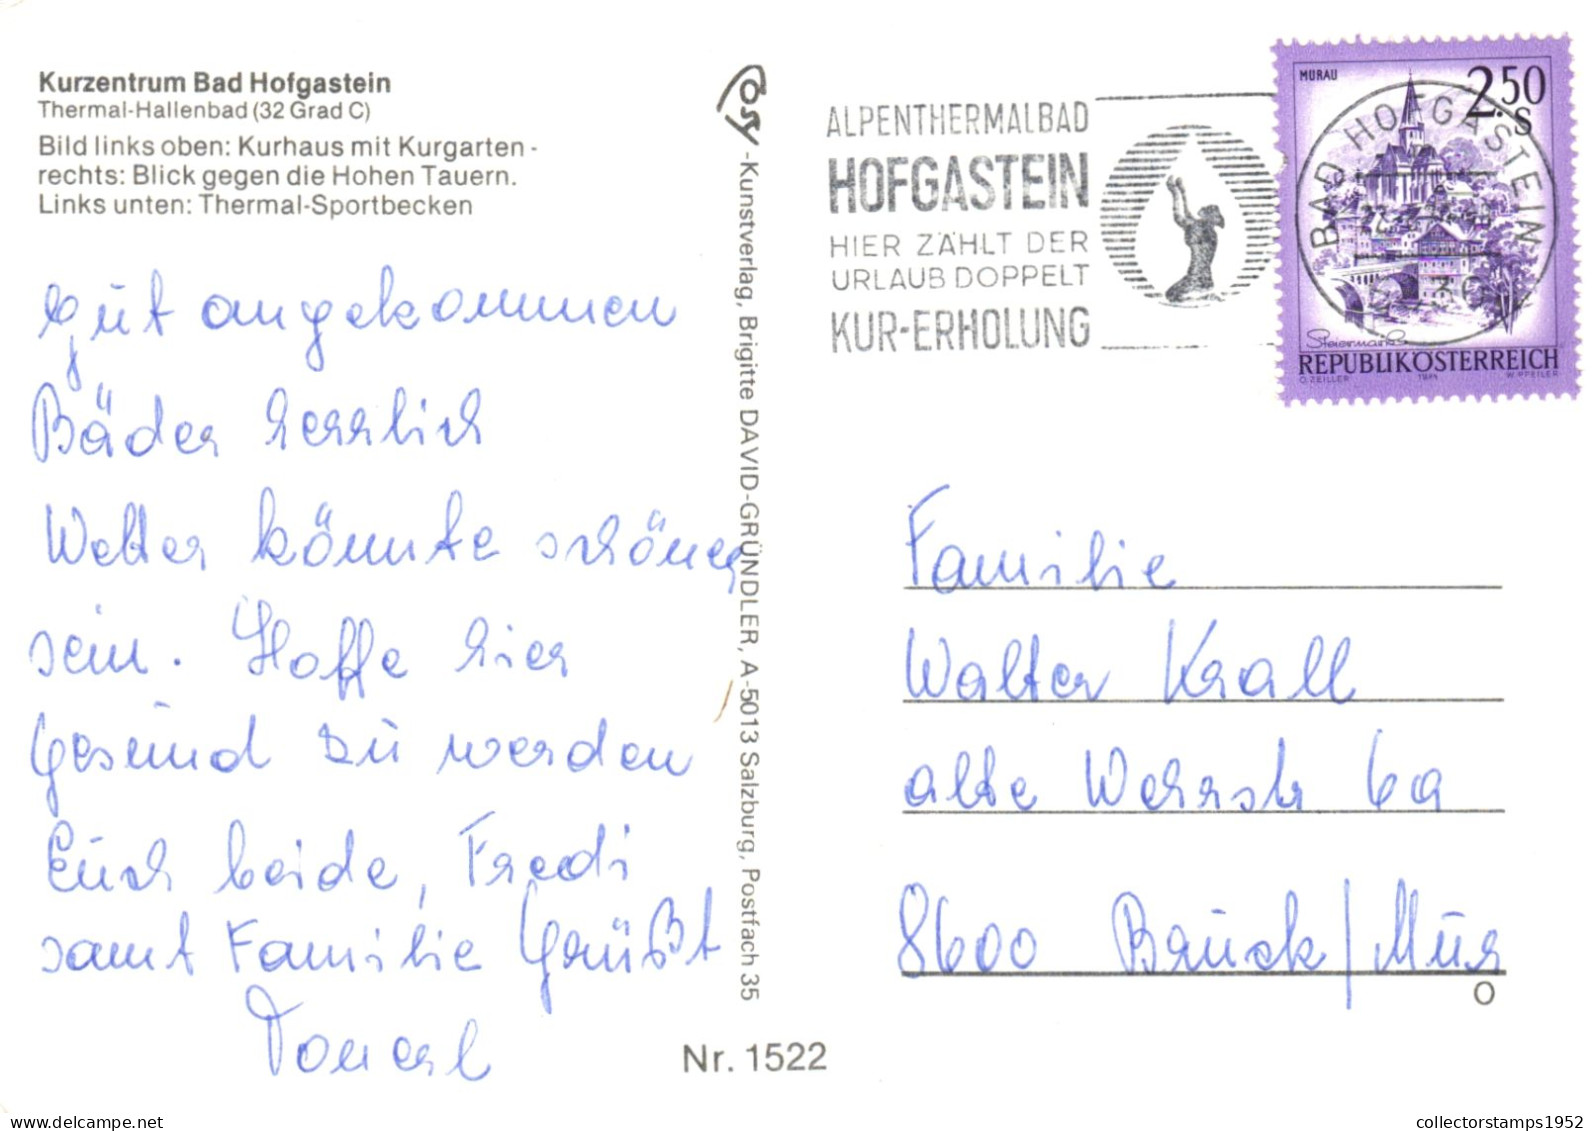 Kurzentrum Bad Hofgastein
Thermal-Hallenbad (32 Grad C)
Bild links oben: Kurhaus mit Kurgarten -
rechts: Blick gegen die Hohen Tauern.
Links unten: Thermal-Sportbecken
gut angekommen
Bäder herrlich
Wetter könnte schöner
sein. Hoffe hier
Gesund zu werden
Euch beide, Fredi
samt Familie Grüßt
Nr. 1522
-Kunstverlag, Brigitte DAVID-GRÜNDLER, A-5013 Salzburg, Postfach 35
ALPENTHERMALBAD
HOFGASTEIN
HIER ZÄHLT DER
URLAUB DOPPELT
KUR-ERHOLUNG
MURAU
2.50
S
BAD HOFGASTEIN
Steiermark
REPUBLIK ÖSTERREICH
O. ZEILLER 1974 W. PFEILER
Familie
Walter Krall
alte Werrstr 6a
8600 Bruck/Mur
O
collectorstamps1952